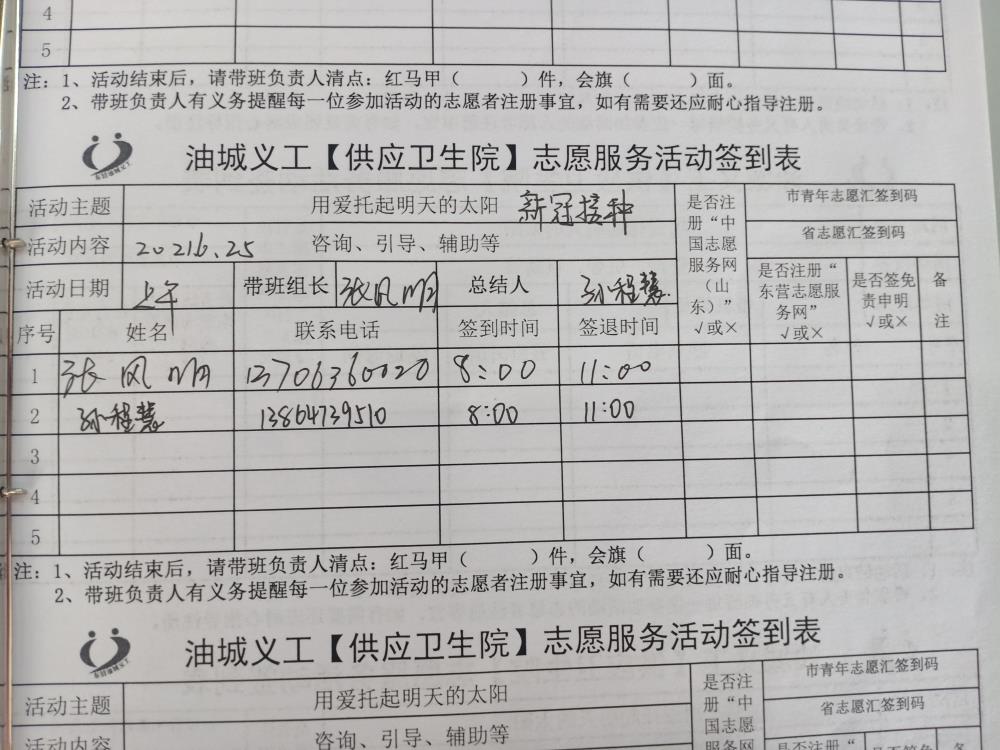 4
5
注：1、活动结束后，请带班负责人清点：红马甲（　　）件，会旗（　　）面。
2、带班负责人有义务提醒每一位参加活动的志愿者注册事宜，如有需要还应耐心指导注册。
油城义工【供应卫生院】志愿服务活动签到表
活动主题 用爱托起明天的太阳 新冠接种 是否注册“中国志愿服务网（山东）”√或× 市青年志愿汇签到码
活动内容 20216.25 咨询、引导、辅助等 省志愿汇签到码
活动日期 上午 带班组长 张风明 总结人 孙程慧 是否注册“东营志愿服务网”√或× 是否签免责申明√或× 备注
序号 姓名 联系电话 签到时间 签退时间
1 张风明 13706360020 8:00 11:00
2 孙程慧 13864739510 8:00 11:00
3
4
5
注：1、活动结束后，请带班负责人清点：红马甲（　　）件，会旗（　　）面。
2、带班负责人有义务提醒每一位参加活动的志愿者注册事宜，如有需要还应耐心指导注册。
油城义工【供应卫生院】志愿服务活动签到表
活动主题 用爱托起明天的太阳 是否注册“中国志愿服务网 市青年志愿汇签到码
活动内容 咨询、引导、辅助等 省志愿汇签到码
是否注册“ 是否签免 备